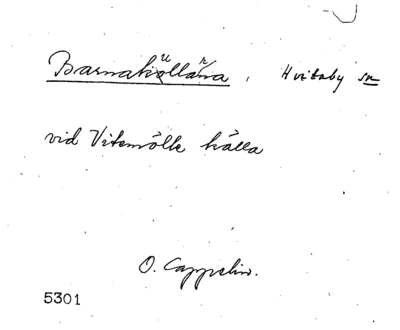 Barnakullarna, Hvitaby sn
vid Vitemölle källa
O. Cappelin.
5301